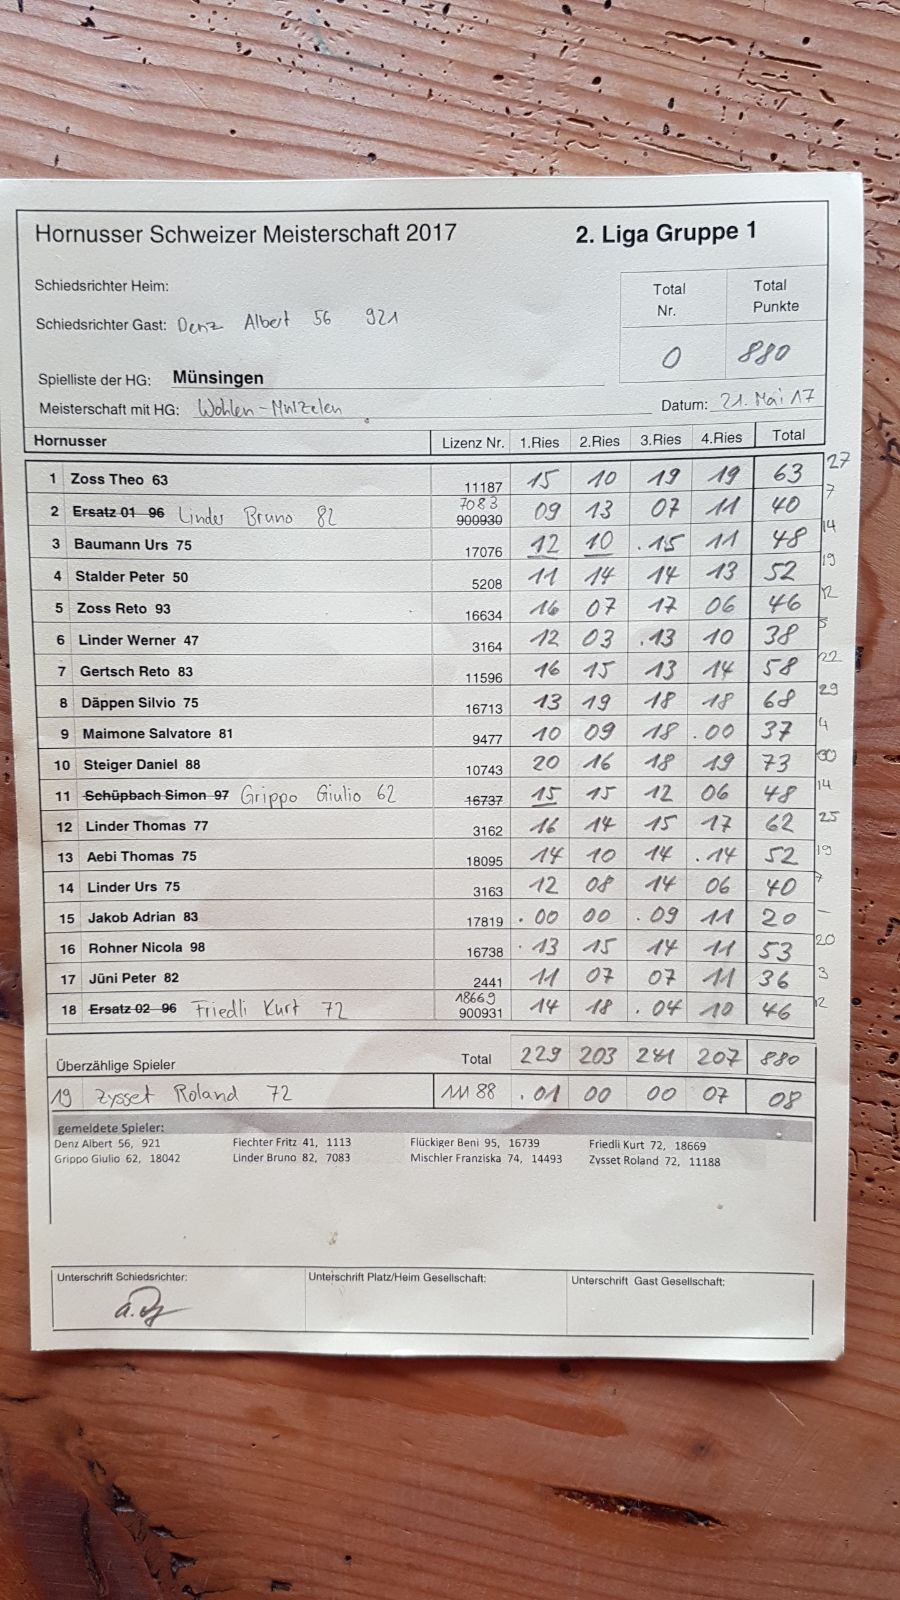 Hornusser Schweizer Meisterschaft 2017 2. Liga Gruppe 1
Schiedsrichter Heim:
Total Nr. Total Punkte
Schiedsrichter Gast: Denz Albert 56 921
0 880
Spielliste der HG: Münsingen
Meisterschaft mit HG: Wohlen - Datum: 21. Mai 17
Hornusser Lizenz Nr. 1.Ries 2.Ries 3.Ries 4.Ries Total
1 Zoss Theo 63 11187 15 10 19 19 63 27
2 Ersatz 01 96 Linder Bruno 82 7083 900930 09 13 07 11 40 7
3 Baumann Urs 75 17076 12 10 .15 11 48 14
4 Stalder Peter 50 5208 11 14 14 13 52 19
5 Zoss Reto 93 16634 16 07 17 06 46 12
6 Linder Werner 47 3164 12 03 .13 10 38 5
7 Gertsch Reto 83 11596 16 15 13 14 58 22
8 Däppen Silvio 75 16713 13 19 18 18 68 29
9 Maimone Salvatore 81 9477 10 09 18 .00 37 4
10 Steiger Daniel 88 10743 20 16 18 19 73 30
11 Schüpbach Simon 97 Grippo Giulio 62 16737 15 15 12 06 48 14
12 Linder Thomas 77 3162 16 14 15 17 62 25
13 Aebi Thomas 75 18095 14 10 14 .14 52 19
14 Linder Urs 75 3163 12 08 14 06 40 7
15 Jakob Adrian 83 17819 .00 00 .09 11 20 -
16 Rohner Nicola 98 16738 .13 15 14 11 53 20
17 Jüni Peter 82 2441 11 07 07 11 36 3
18 Ersatz 02 96 Friedli Kurt 72 18669 900931 14 18 .04 10 46 12
Überzählige Spieler Total 229 203 241 207 880
19 Zysset Roland 72 11188 .01 00 00 07 08
gemeldete Spieler:
Denz Albert 56, 921 Fiechter Fritz 41, 1113 Flückiger Beni 95, 16739 Friedli Kurt 72, 18669
Grippo Giulio 62, 18042 Linder Bruno 82, 7083 Mischler Franziska 74, 14493 Zysset Roland 72, 11188
Unterschrift Schiedsrichter: Unterschrift Platz/Heim Gesellschaft: Unterschrift Gast Gesellschaft: